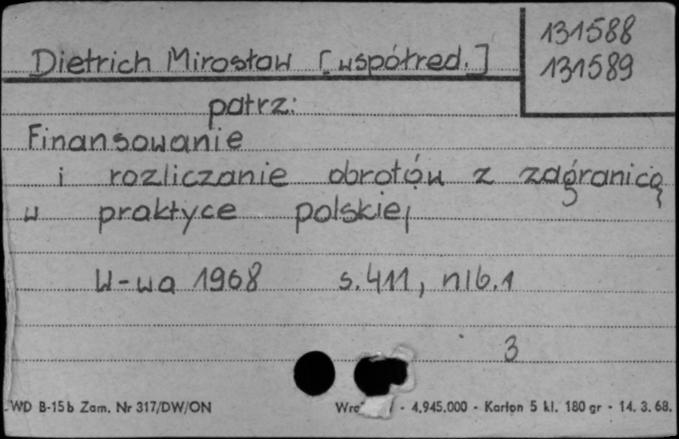 131588
Dietrich Mirosław [współred.]
131589
patrz:
Finansowanie
i rozliczanie obrotów z zagranicą
w praktyce polskiej
W-wa 1968 s. 411, nlb. 1
3
WD B-15b Zam. Nr 317/DW/ON - 4.945.000 - Karton 5 kl. 180 gr - 14. 3. 68.